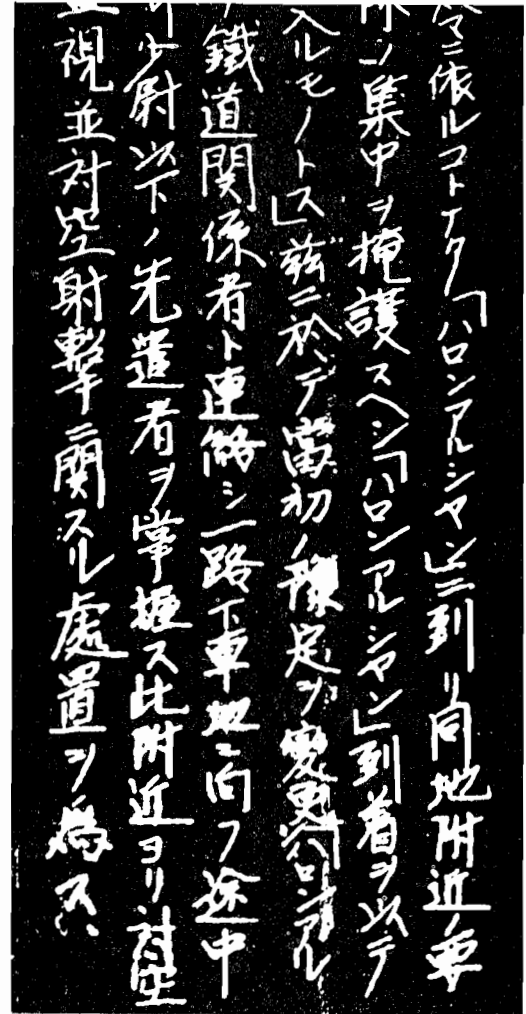 ニ依ルコトナク「ハロンアルシヤン」ニ到リ同地附近ノ要
ノ集中ヲ掩護スヘシ「ハロンアルシヤン」到着ヲ以テ
入ルモノトス」茲ニ於テ當初ノ豫定ヲ変更「ハロンアル
鐵道関係者ト連絡シ一路下車地ニ向フ途中
少尉以下ノ先遣者ヲ掌握ス此附近ヨリ対空
視並対空射撃ニ関スル處置ヲ為ス